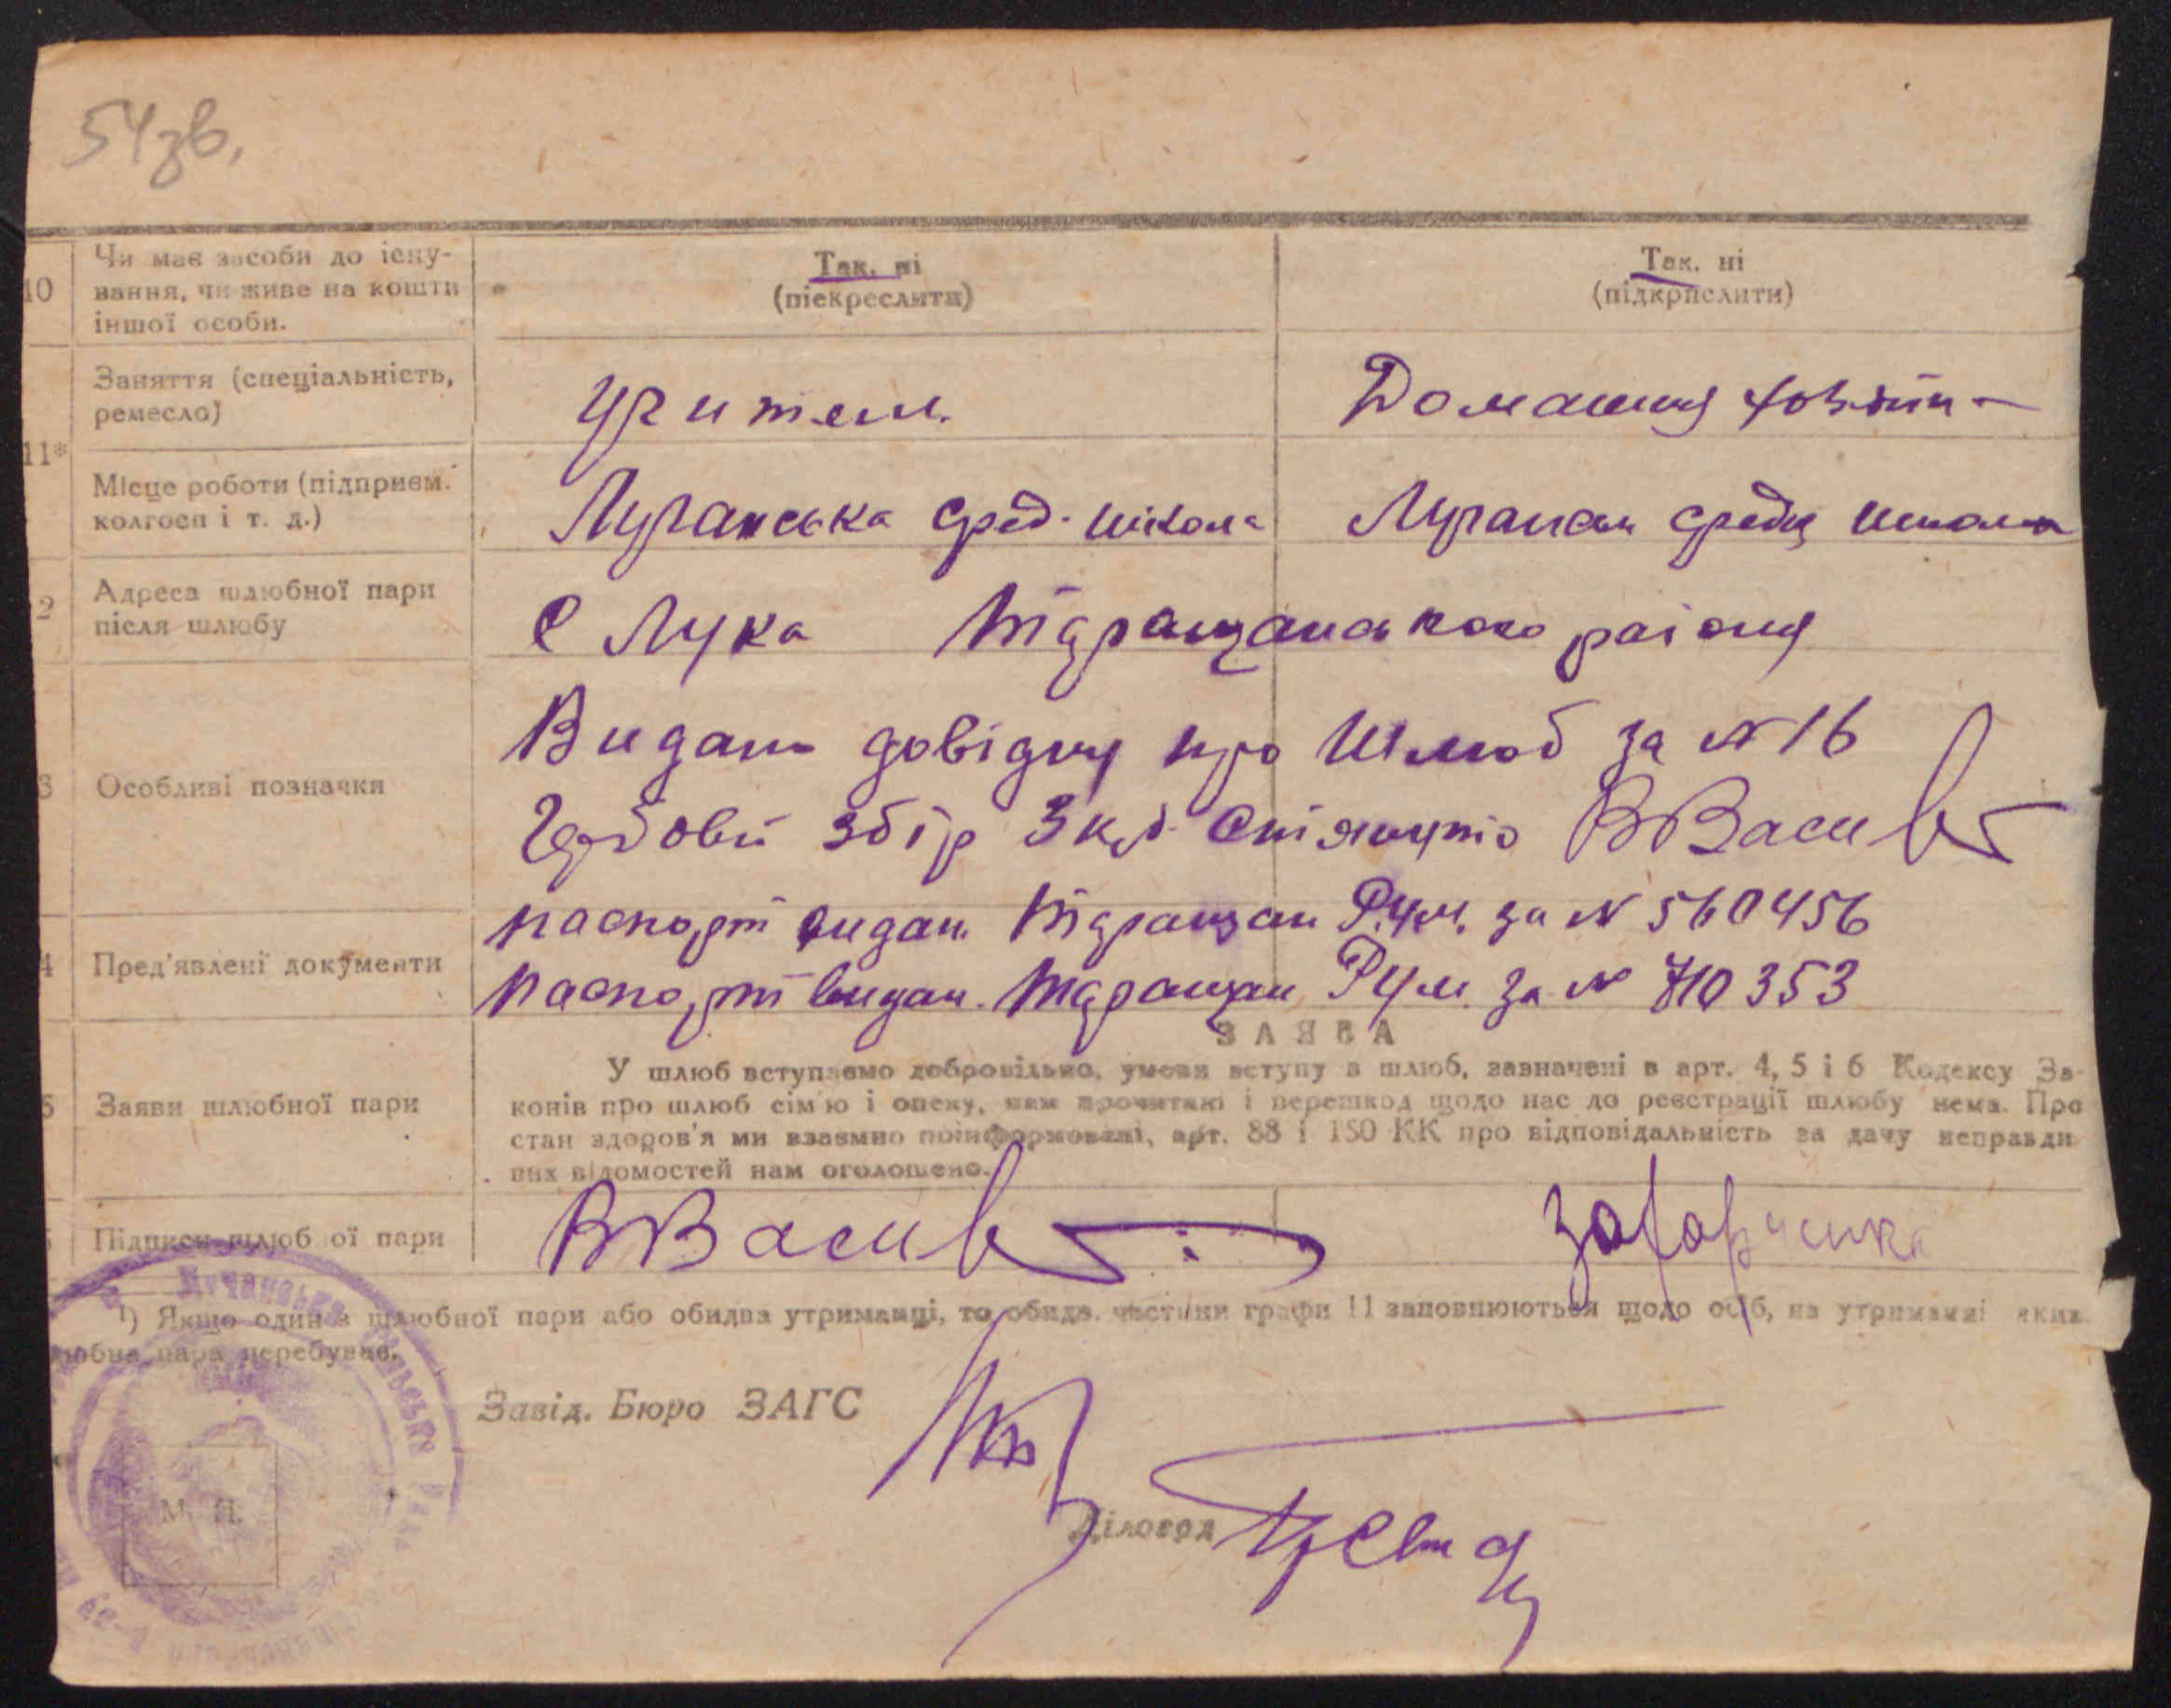 54 зв.
10 Чи має засоби до існу-
вання, чи живе на кошти
іншої особи.
Так. ні
(піекреслити)
Так. ні
(підкрпслити)
11*
Заняття (спеціальність,
ремесло)
Учитель
Домашня
Місце роботи (підприєм.
колгосп і т. д.)
Лучанська сред. школа
средн школа
2 Адреса шлюбної пари
після шлюбу
С Лука Таращанського району
3 Особливі позначки
Видано довідку про Шлюб за № 16
Гербовий збір 3 кб. Стягнуто ВВасил
4 Пред'явлені документи
паспорт видан. Таращан Р.У.М. за № 560456
паспорт видан. Таращан РУМ. за № 710353
5 Заяви шлюбної пари
ЗАЯВА
У шлюб вступаємо добровільно, умови вступу в шлюб, зазначені в арт. 4, 5 і 6 Кодексу За-
конів про шлюб сім'ю і опеку, нам прочитані і перешкод щодо нас до реєстрації шлюбу нема. Про
стан здоров'я ми взаємно поінформовані, арт. 88 і 150 КК про відповідальність за дачу неправди
вих відомостей нам оголошено.
Підписи шлюб ої пари
ВВасил
Захарченко
¹) Якщо один з шлюбної пари або обидва утриманці, то обидв. частини графи 11 заповнюються щодо осіб, на утриманні яких
любна пара перебуває.
Завід. Бюро ЗАГС
Діловод
М. П.
Лучанська сільська Рада